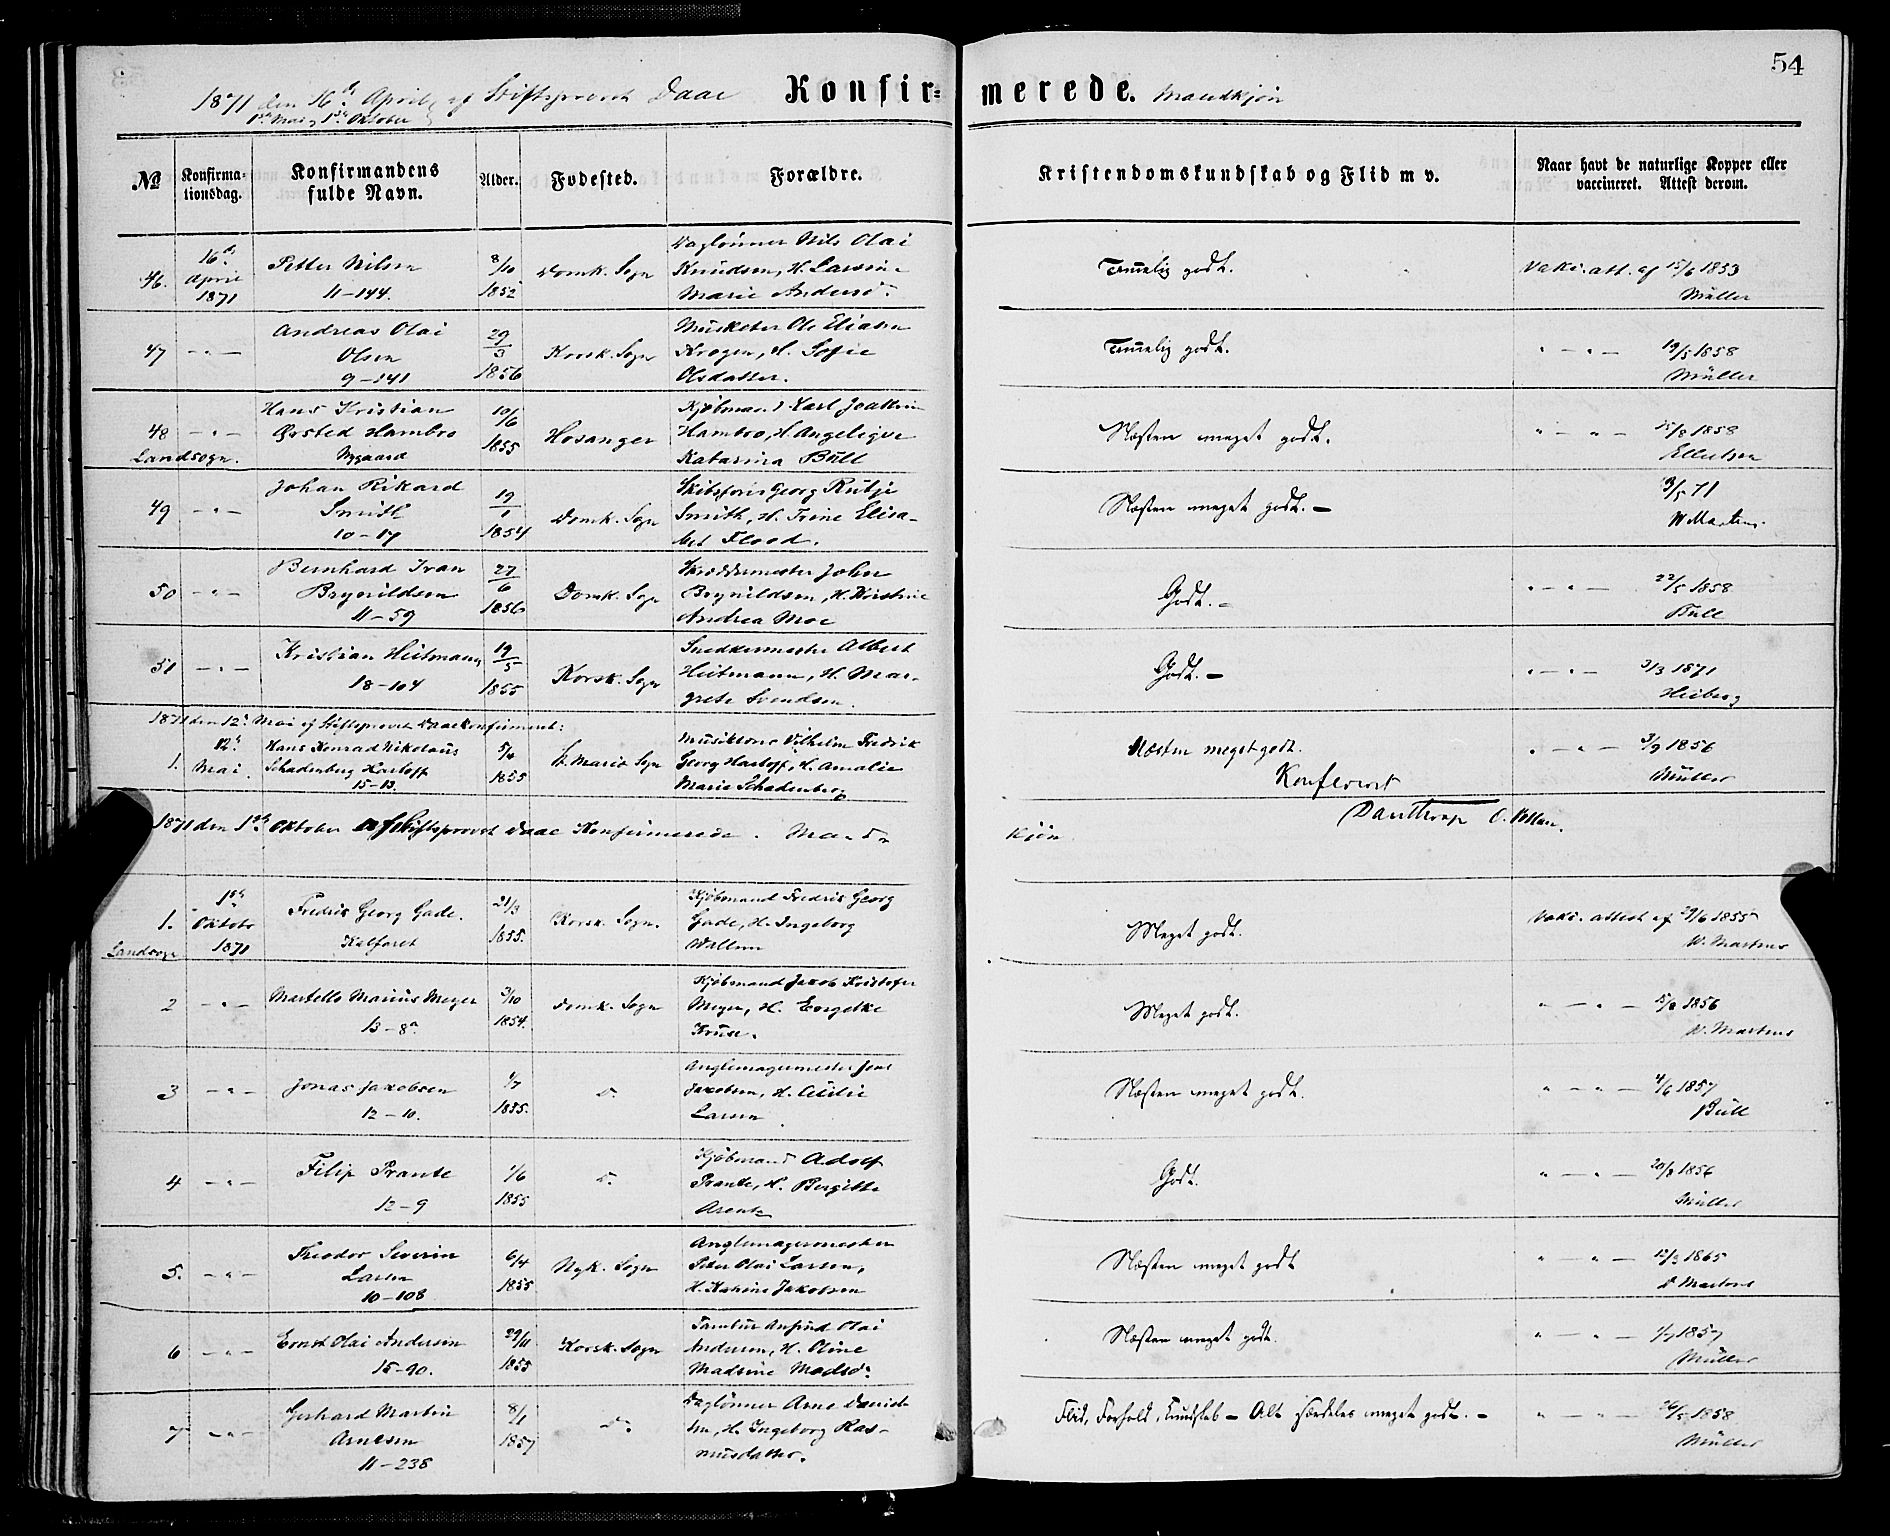 54
1871 den 16de April, af Stiftsprovst Daae Konfir- merede. Mandkjøn
1ste Mai, 1ste Oktober
No Konfirmationsdag. Konfirmandens fulde Navn. Alder. Fødested. Forældre. Kristendomskundskab og Flid m v. Naar havt de naturlige Kopper eller vaccineret. Attest derom.
46. 16de April 1871 Petter Nilsen 11-144. 8/10 1852 Domk. Sogn Daglønner Nils Olai Knudsen, H. Larsine Marie Andersd. Temmelig godt. Vaki. att. af 15/6 1853 Müller
47 - " - Andreas Olai Olsen 9-141 29/3 1856 Korsk. Sogn Musketer Ole Eliasen Krogen, H. Sofie Olsdatter. Temmelig godt. " - " - 19/5 1858 Müller
48 - " - Landsogn. Hans Kristian Ørsted Hambro Nygaard 10/6 1855 Hosanger Kjøbmand Karl Joakim Hambro, H. Angelique Katarina Bull Næsten meget godt. " - " - 15/8 1858
49 - " - Johan Rikard Smith 10-17 19/1 1854 Domk. Sogn Skibsfører Georg Rütje Smith, H. Trine Elisabet Flood. Næsten meget godt. - 3/5 71 W Martens.
50 - " - Bernhard Ivan Brynildsen 11-59 27/6 1856 Domk. Sogn Skræddermester John Brynildsen, H. Kirstine Andrea Moe Godt. - " - " - 22/5 1858 Bull
51 - " - Kristian Heitmann 18-104 19/5 1855 Korsk. Sogn Snedkermester Albert Heitmann, H. Margrete Svendsen. Godt. - " - " - 3/3 1871 Heiberg
1871 den 12te Mai af Stiftsprovst Daae konfirmeret:
1. 12te Mai. Hans Konrad Nikolaus Schadenberg Hartoff 15-13. 5/4 1855 St. Maria Sogn Vilhelm Fredrik Georg Hartoff, H. Amalie Marie Schadenberg Næsten meget godt. " - " - 3/9 1856 Müller
Konfereret
1871 den 1ste Oktober af Stiftsprovst Daae Konfirmerede. Mand- kjøn
1. 1ste Oktober 1871 Landsogn Fredrik Georg Gade. Kalfaret 21/3 1855. Korsk. Sogn. Kjøbmand Fredrik Georg Gade, H. Ingeborg Wallem Meget godt. Vaki. attest af 29/6 1855 W. Martens
2 - " - Martello Marius Meyer 13-8a 3/10 1854. Domk. Sogn Kjøbmand Jakob Kristofer Meyer, H. Engelke Kruse. Meget godt. " - " - 15/8 1856 W. Martens
3 - " - Jonas Jakobsen 12-10. 1/7 1855. Do Jakobsen, H. Cecilie Larsen Næsten meget godt. " - " - 4/6 1857 Bull
4 - " - Filip Prante 12-9 1/6 1855 Do Kjøbmand Adolf Prante, H. Bergitte Arentz Godt. " - " - 20/8 1856 Müller
5. - " - Theodor Severin Larsen 10-108 6/4 1855 Nyk. Sogn Peter Olai Larsen, H. Katrine Jakobsen Næsten meget godt " - " - 12/3 1865 Martens
6 - " - Ernst Olai Andersen 15-90. 29/11 1855 Korsk. Sogn Tambur Anfind Olai Andersen, H. Oline Madsine Madsd. Næsten meget godt. " - " - 1/7 1857 Müller
7 - " - Gerhard Martin Arnesen 11-238 8/1 1857 Do Daglønner Arne Danielsen, H. Ingeborg Rasmusdatter. Flid, Forhold, Kundskab - Alt særdeles meget godt. - " - " - 26/5 1858 Müller